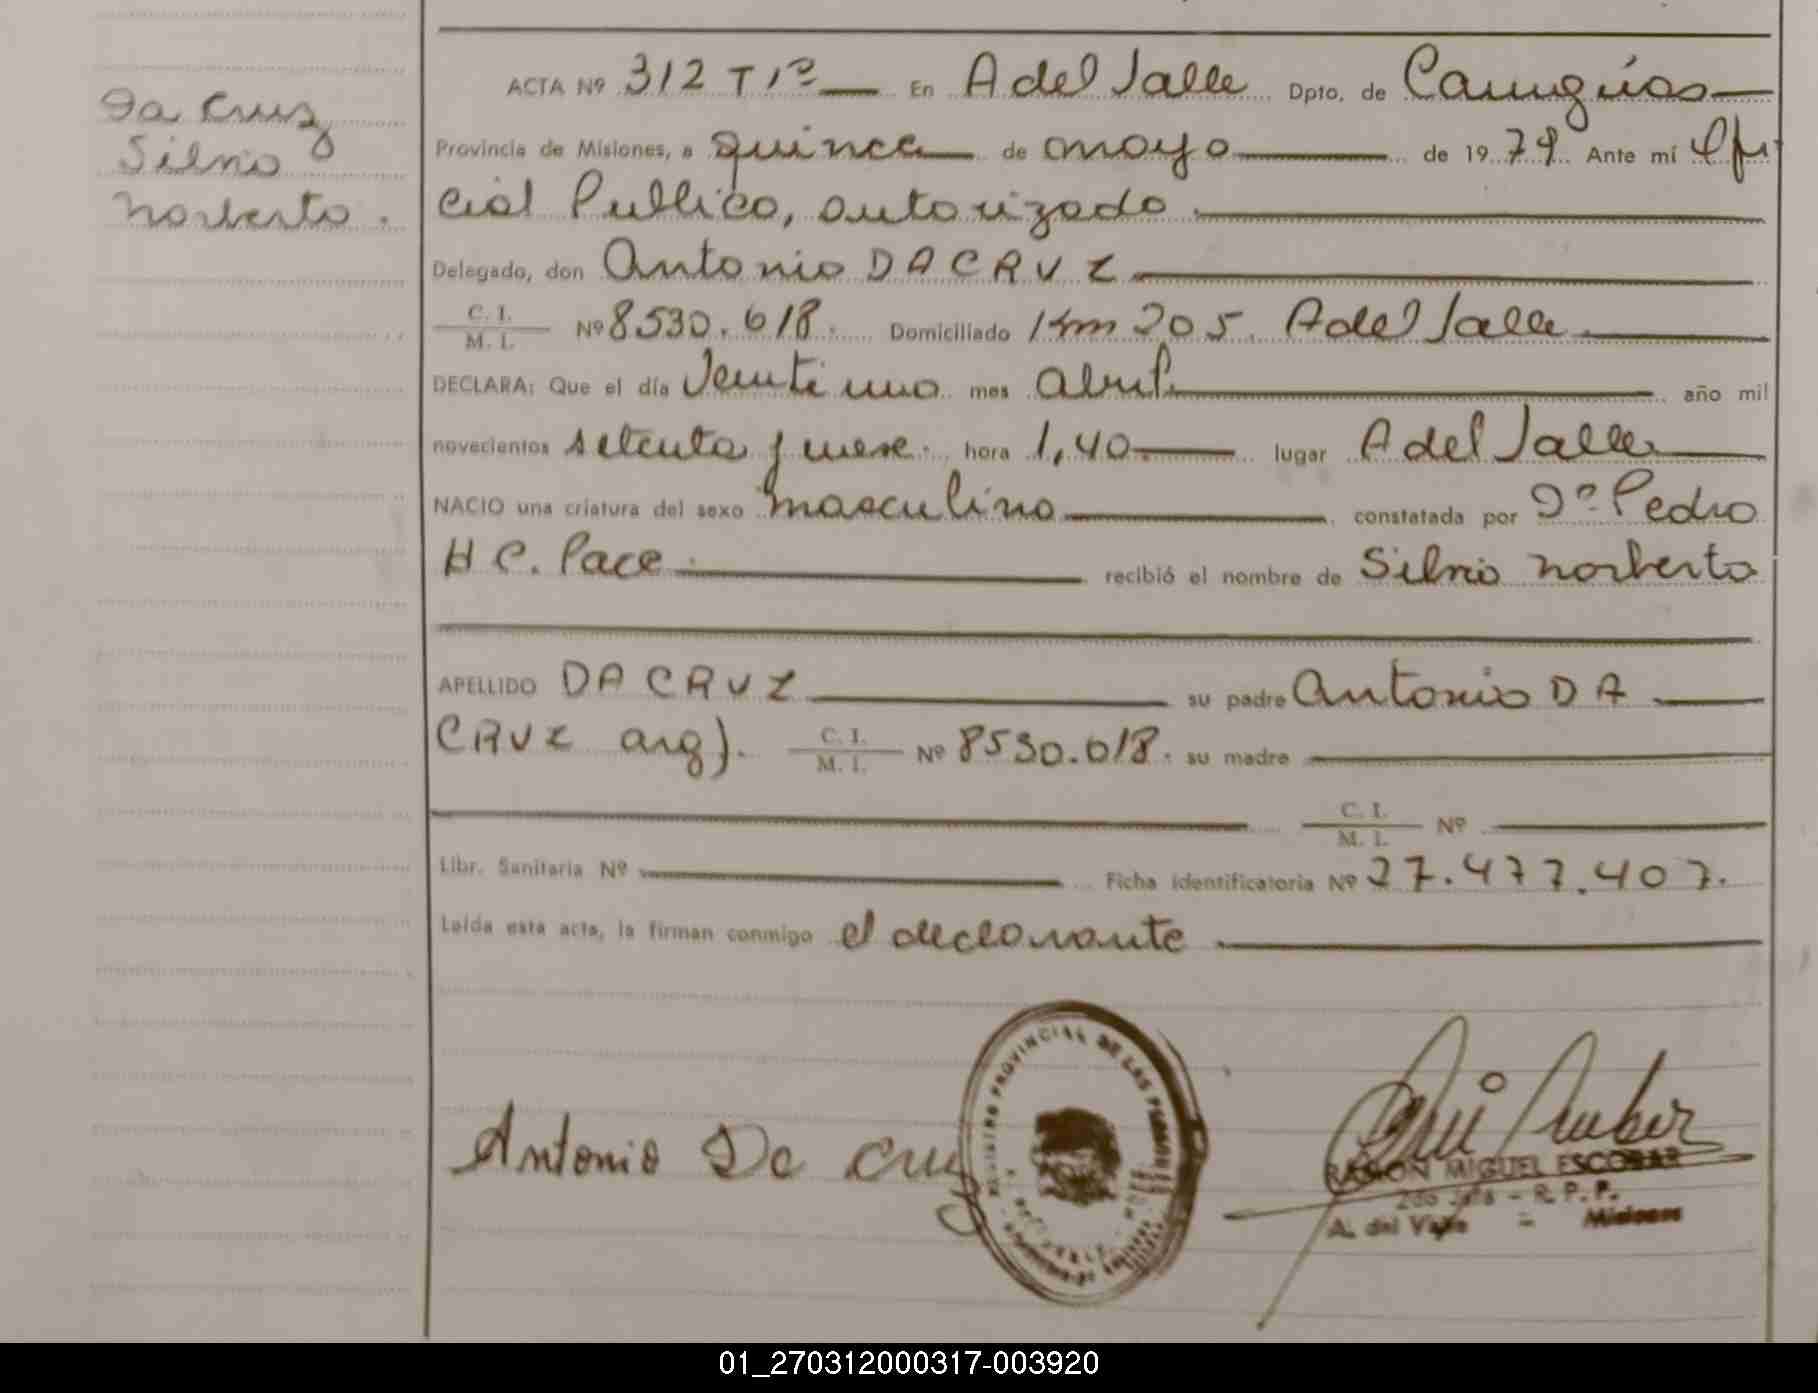 Da Cruz
Silvio
Norberto.
ACTA Nº 312 T 1º En A del Valle Dpto. de Cainguás
Provincia de Misiones, a quince de mayo de 1979 Ante mí Ofi
cial Publico, autorizado
Delegado, don Antonio DA CRUZ
C. I.
M. I.
Nº 8530.618. Domiciliado Km 205. A del Valle
DECLARA: Que el día Veintiuno mes abril año mil
novecientos setenta y nueve. hora 1,40 lugar A del Valle
NACIO una criatura del sexo masculino constatada por Dº Pedro
H C. Pace. recibió el nombre de Silvio Norberto
APELLIDO DA CRUZ su padre Antonio DA
CRUZ arg). C. I.
M. I.
Nº 8530.618. su madre
C. I.
M. I.
Nº
Libr. Sanitaria Nº Ficha identificatoria Nº 27.477.407.
Leída esta acta, la firman conmigo el declarante
Antonio Da Cruz
REGISTRO PROVINCIAL DE LAS PERSONAS
RAMON MIGUEL ESCOBAR
2do Jefe - R. P. P.
A. del Valle - Misiones
01_270312000317-003920